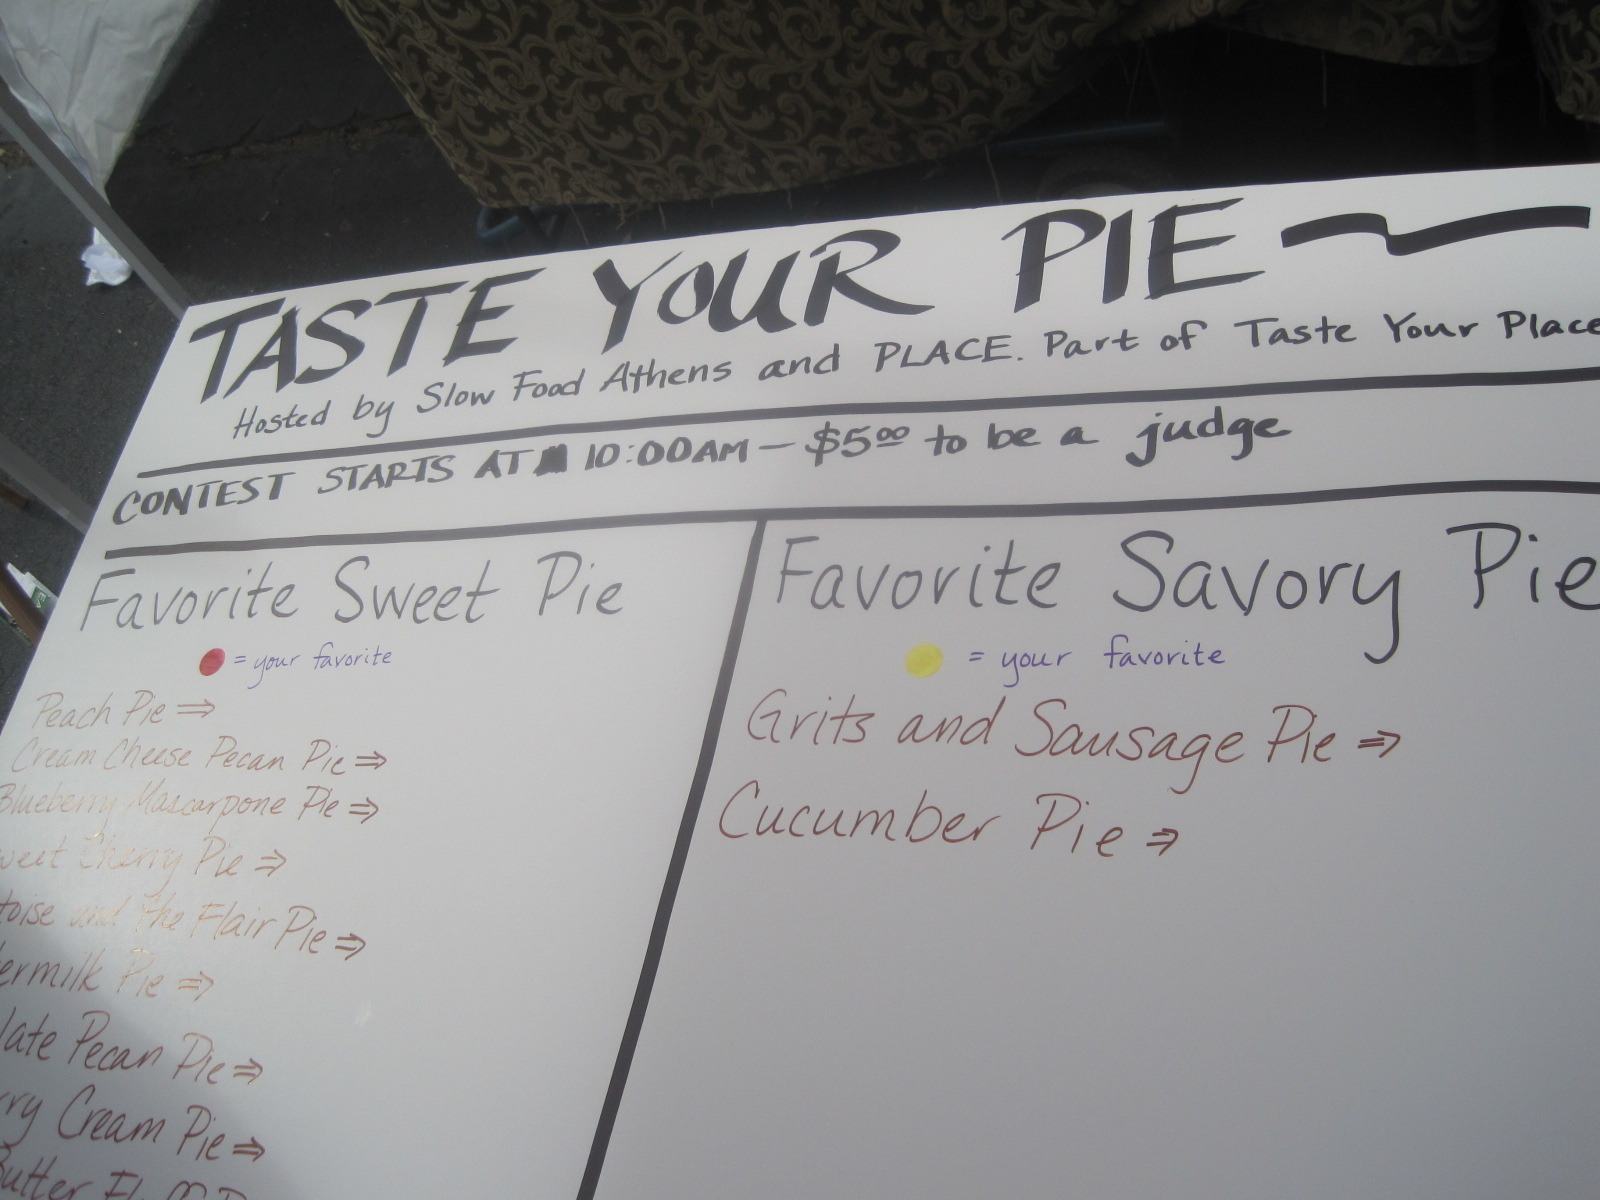 TASTE YOUR PIE
Hosted by Slow Food Athens and PLACE. Part of Taste Your Place
CONTEST STARTS AT 10:00AM - $5.00 to be a judge
Favorite Sweet Pie
= your favorite
Peach Pie ⇒
Cream Cheese Pecan Pie ⇒
Blueberry Mascarpone Pie ⇒
weet Cherry Pie ⇒
toise and The Flair Pie ⇒
ermilk Pie ⇒
late Pecan Pie ⇒
rry Cream Pie ⇒
Butter
Favorite Savory Pie
= your favorite
Grits and Sausage Pie ⇒
Cucumber Pie ⇒